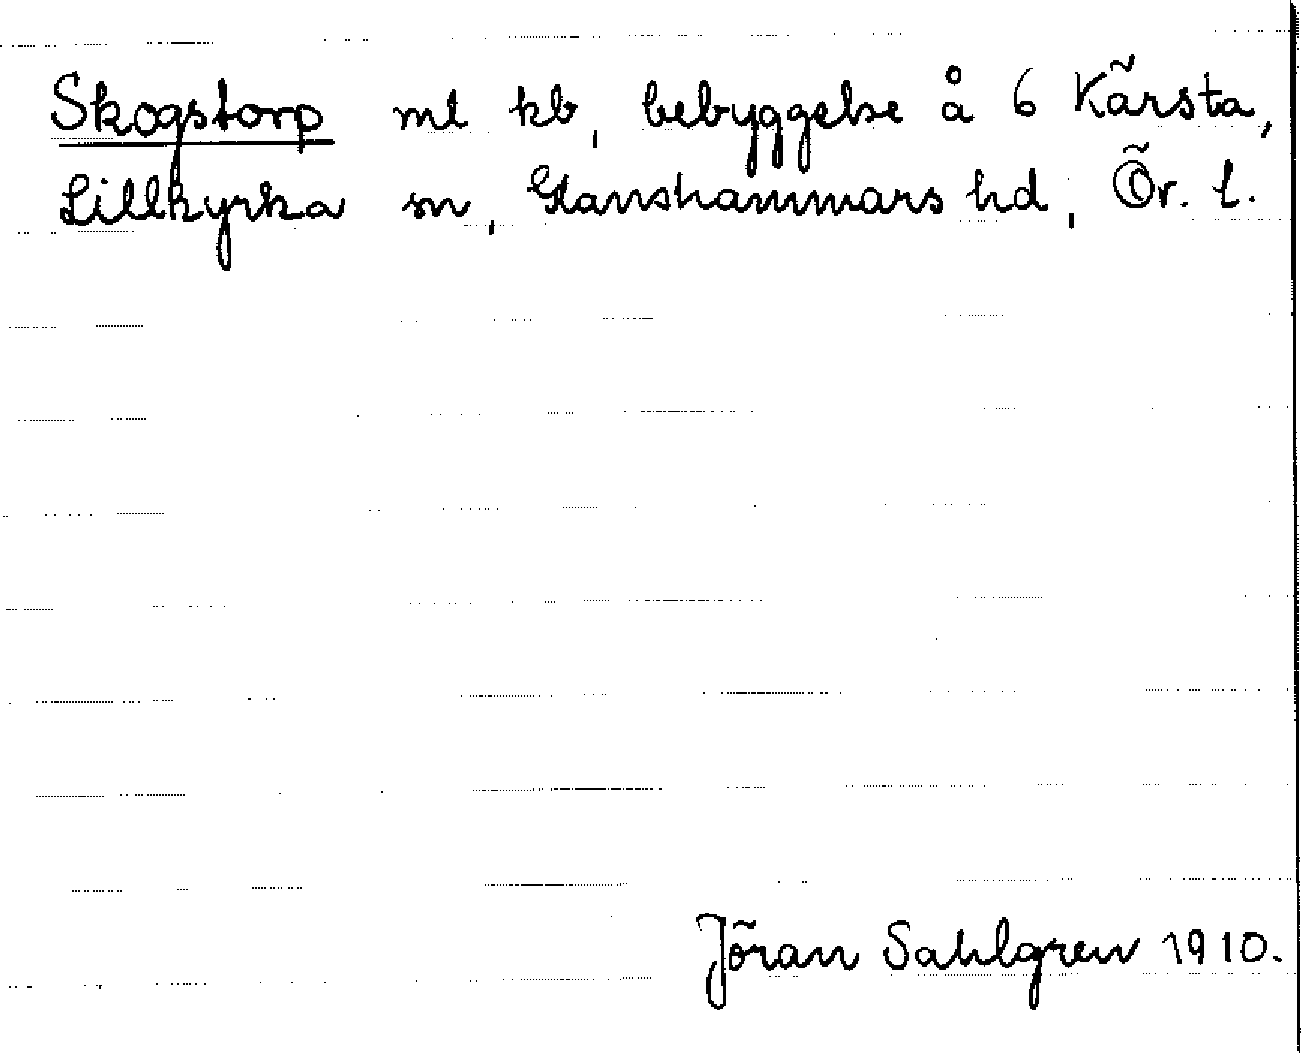 Skogstorp ml kb, bebyggelse å 6 Kärsta,
Lillkyrka sn, Glanshammars hd, Ör. l.
Jöran Sahlgren 1910.